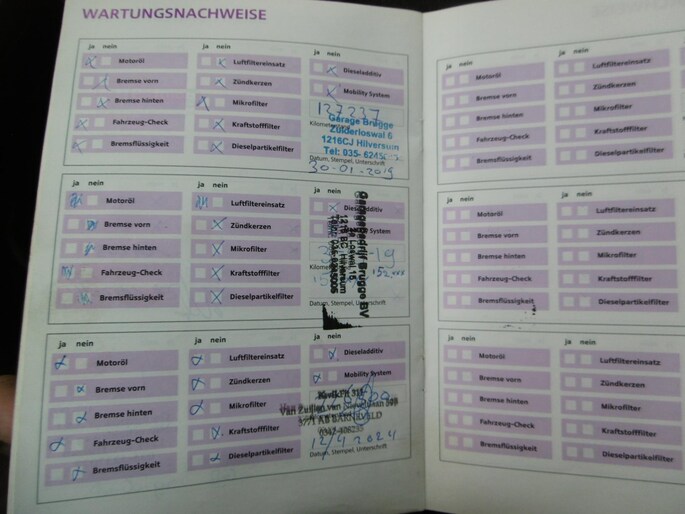 WARTUNGSNACHWEISE
ja nein
Motoröl
Bremse vorn
Bremse hinten
Fahrzeug-Check
Bremsflüssigkeit
ja nein
Luftfiltereinsatz
Zündkerzen
Mikrofilter
Kraftstofffilter
Dieselpartikelfilter
ja nein
Dieseladditiv
Mobility System
127237
Garage Brugge
Zuiderloswal 6
1216CJ Hilversum
Tel: 035-
Datum, Stempel, Unterschrift
30-01-2019
ja nein
Motoröl
Bremse vorn
Bremse hinten
Fahrzeug-Check
Bremsflüssigkeit
ja nein
Luftfiltereinsatz
Zündkerzen
Mikrofilter
Kraftstofffilter
Dieselpartikelfilter
ja nein
Dieseladditiv
System
Brugge BV
1216 BC Hilversum
Datum, Stempel, Unterschrift
ja nein
Motoröl
Bremse vorn
Bremse hinten
Fahrzeug-Check
Bremsflüssigkeit
ja nein
Luftfiltereinsatz
Zündkerzen
Mikrofilter
Kraftstofffilter
Dieselpartikelfilter
ja nein
Dieseladditiv
Mobility System
BARNEVELD
12/4 2024
Datum, Stempel, Unterschrift
ja nein
Motoröl
Bremse vorn
Bremse hinten
Fahrzeug-Check
Bremsflüssigkeit
ja nein
Luftfiltereinsatz
Zündkerzen
Mikrofilter
Kraftstofffilter
Dieselpartikelfilter
ja nein
Motoröl
Bremse vorn
Bremse hinten
Fahrzeug-Check
Bremsflüssigkeit
ja nein
Luftfiltereinsatz
Zündkerzen
Mikrofilter
Kraftstofffilter
Dieselpartikelfilter
ja nein
Motoröl
Bremse vorn
Bremse hinten
Fahrzeug-Check
Bremsflüssigkeit
ja nein
Luftfiltereinsatz
Zündkerzen
Mikrofilter
Kraftstofffilter
Dieselpartikelfilter